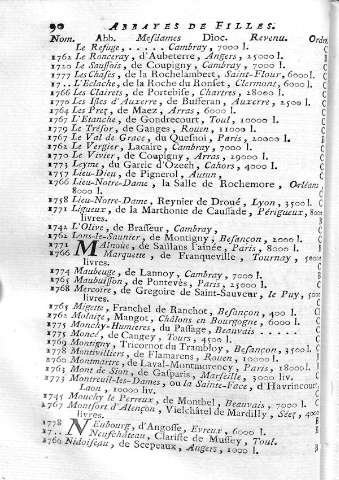 90 ABBAYES DE FILLES.
Nom. Abb. Mesdames Dioc. Revenu. Ordre
Le Refuge, . . . . . . Cambray, 7000 l.
1762 Le Ronceray, d'Aubeterre, Angers, 25000 l.
1720 Le Saussois, de Coupigny, Cambray, 7000 l.
1777 Les Chases, de la Rochelambert, Saint-Flour, 6000 l.
17.. L'Eclache, de la Roche du Ronset, Clermont, 6000 l.
1766 Les Clairets, de Portebise, Chartres, 18000 l.
1770 Les Isles d'Auxerre, de Bufferan, Auxerre, 2500 l.
1764 Les Prez, de Maez, Arras, 6000 l.
1767 L'Etanche, de Gondrecourt, Toul, 10000 l.
1779 Le Trésor, de Ganges, Rouen, 11000 l.
1767 Le Val de Grace, du Quesnoi, Paris, 20000 l.
1762 Le Vergier, Lacaire, Cambray, 7000 l.
1770 Le Vivier, de Coupigny, Arras, 19000 l.
1773 Leyme, du Garric d'Ozech, Cahors, 4000 l.
1757 Lieu-Dieu, de Pignerol, Autun,
1766 Lieu-Notre-Dame, la Salle de Rochemore, Orléans
8000 l.
1758 Lieu-Notre-Dame, Reynier de Droué, Lyon, 3500 l.
1771 Ligueux, de la Marthonie de Caussade, Périgueux, 8000
livres.
1742 L'Olive, de Brasseur, Cambray,
1762 Lons-le-Saunier, de Montigny, Besançon, 2000 l.
1771 Malnoue, de Saillans l'aînée, Paris, 8000 l.
1766 Marquette, de Franqueville, Tournay, 5000
livres.
1774 Maubeuge, de Lannoy, Cambray, 7000 l.
1765 Maubuisson, de Pontevès, Paris, 25000 l.
1768 Mercoire, de Gregoire de Saint-Sauveur, le Puy, 500
livres.
1765 Migette, Franchel de Ranchot, Besançon, 400 l.
1762 Molaize, Mangot, Châlons en Bourgogne, 6000 l.
1775 Monchy-Humieres, du Passage, Beauvais . . . . .
1775 Moncé, de Cangey, Tours, 4500 l.
1769 Montigny, Tricornot du Trambloy, Besançon, 3500 l.
1778 Montivilliers, de Flamarens, Rouen, 10000 l.
1760 Montmartre, de Laval-Montmorency, Paris, 18000 l.
1763 Mont de Sion, de Gasparis, Marseille, 3000 liv.
1773 Montreuil-les-Dames, ou la Sainte-Face, d'Havrincour,
Laon, 10000 liv.
1745 Mouchy le Perreux, de Monthel, Beauvais, 7000 l.
1767 Montfort d'Alençon, Vielchâtel de Mardilly, Séez, 4000
livres.
1778 Neubourg, d'Angosse, Evreux, 6000 l.
17.. Neufchâteau, Clarisse de Mussey, Toul.
1760 Nidoiseau, de Scepeaux, Angers, 1000 l.